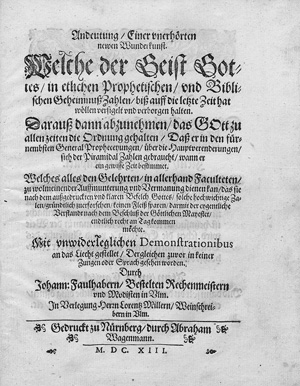 Andeutung / Einer vnerhörten
newen Wunderkunst.
Welche der Geist Got-
tes / in etlichen Prophetischen / vnd Bibli-
schen Geheimnuß Zahlen / biß auff die letzte Zeit hat
wöllen versigelt vnd verborgen halten.
Darauß dann abzunehmen / das GOtt zu
allen zeiten die Ordnung gehalten / Daß er in den für-
nembsten General Propheceyungen / über die Hauptverenderungen /
sich der Piramidal Zahlen gebraucht / wann er
ein gewisse Zeit bestimmet.
Welches alles den Gelehrten / in allerhand Faculteten /
zu wolmeinender Auffmunterung vnd Vermanung dienen kan / das sie
nach dem außgedruckten vnd klaren Befelch Gottes / solche hochwichtige Za-
len / gründtlich zu erforschen / keinen Fleiß sparen / darmit der eygentliche
Verstandt nach dem Beschluß der Göttlichen Mayestet /
endtlich recht an Tag kommen
möchte.
Mit vnwiderleglichen Demonstrationibus
an das Liecht gestellet / Dergleichen zuvor in keiner
Zungen oder Sprach gesehen worden.
Durch
Johann: Faulhabern / Bestelten Rechenmeistern
vnd Modisten in Vlm.
In Verlegung Herrn Lorentz Müllern / Weinschrei-
bern in Vlm.
Gedruckt zu Nürnberg / durch Abraham
Wagenmann.
M. DC. XIII.